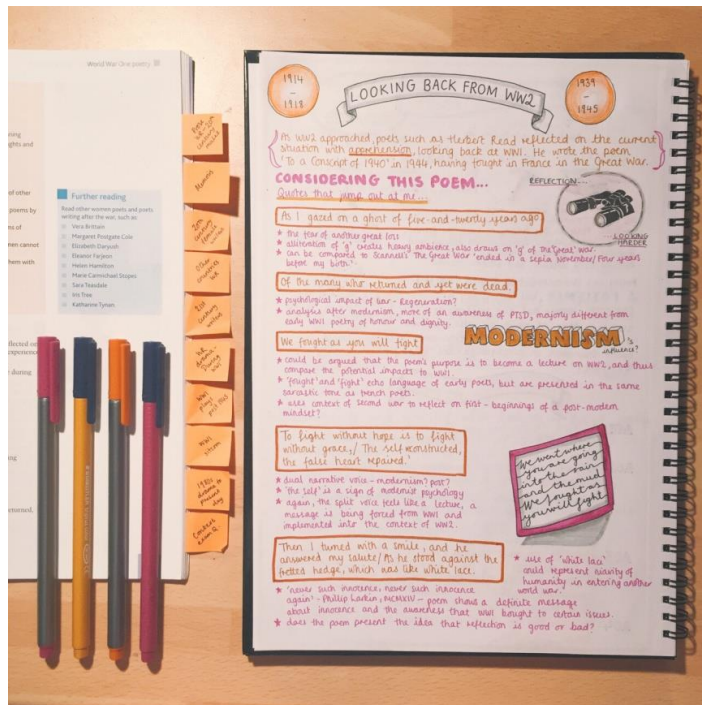 World War One poetry
Further reading
Read other women poets and poets
writing after the war, such as
Vera Brittain
Margaret Postgate Cole
Elizabeth Daryush
Eleanor Farjeon
Helen Hamilton
Marie Carmichael Stopes
Sara Teasdale
Iris Tree
Katharine Tynan
ghts and
of other
poems by
ns of
en cannot
hem with
eflected on
experience
during
eturned.
Memoirs
other
countries
1914
-
1918
LOOKING BACK FROM WW2
1939
-
1945
As WW2 approached, poets such as Herbert Read reflected on the current
situation with apprehension, looking back at WW1. He wrote the poem
'To a Conscript of 1940' in 1944, having fought in France in the Great War.
CONSIDERING THIS POEM...
Quotes that jump out at me...
REFLECTION...
LOOKING
HARDER
As I gazed on a ghost of five-and-twenty years ago
★ the fear of another great loss
★ alliteration of 'g' creates heavy ambience, also draws on 'g' of The 'Great' War.
★ can be compared to Scannell's The Great War 'ended in a sepia November/Four years
before my birth.'
Of the many who returned and yet were dead.
★ psychological impact of war - Regeneration?
★ analysis after modernism, more of an awareness of PTSD, majorly different from
early WW1 poetry of honour and dignity.
MODERNISM's
influence?
We fought as you will fight
★ could be argued that the poem's purpose is to become a lecture on WW2, and thus
compare the potential impacts to WW1.
★ 'fought' and 'fight' echo language of early poets, but are presented in the same
sarcastic tone as trench poets.
★ uses context of second war to reflect on first - beginnings of a post-modern
mindset?
To fight without hope is to fight
without grace,/ The self reconstructed,
the false heart repaired.'
★ dual narrative voice - modernism? post?
★ 'the self' is a sign of modernist psychology
★ again, the split voice feels like a lecture, a
message is being forced from WW1 and
implemented into the context of WW2.
We went where
you are going
into the rain
and the mud
We fought as
you will fight
Then I turned with a smile, and he
answered my salute/ As he stood against the
fretted hedge, which was like white lace.
★ use of 'white lace'
could represent niavity of
humanity in entering another
world war.
★ 'never such innocence, never such innocence
again' - Phillip Larkin, MCMXIV - poem shows a definite message
about innocence and the awareness that WW1 bought to certain issues.
★ does the poem present the idea that reflection is good or bad?